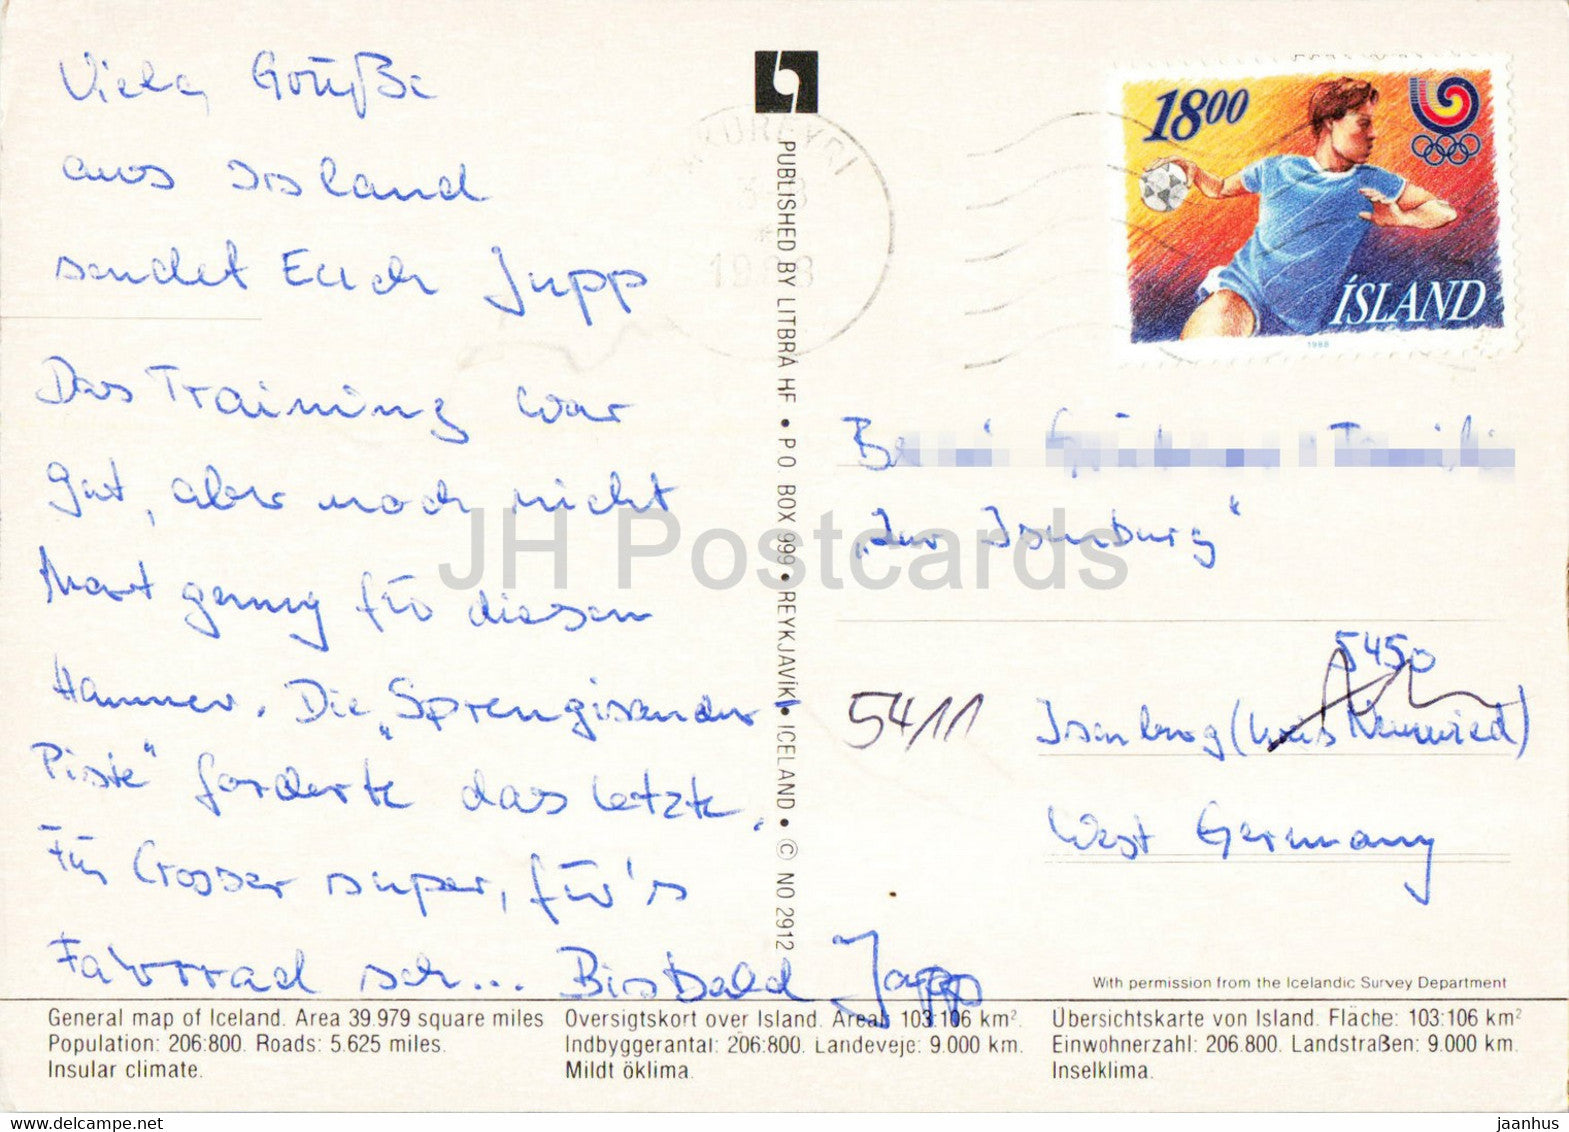 Viele Grüße
aus Island
sendet Euch Jupp
Das Training war
gut, aber noch nicht
hart genug für diesen
Hammer. Die „Sprengisandur-
Piste“ forderte das letzte.
Für Crosser super, für's
Fahrrad sch... Bis bald Jupp
PUBLISHED BY LITBRA HF • P O BOX 999 • REYKJAVÍK • ICELAND • © NO 2912
AKUREYRI
1988
18⁰⁰
ÍSLAND
1988
„Zur Isenburg“
5450
5411 Isenburg (Kreis Neuwied)
West Germany
With permission from the Icelandic Survey Department
General map of Iceland. Area 39.979 square miles
Population: 206:800. Roads: 5.625 miles.
Insular climate.
Oversigtskort over Island. Areal: 103:106 km².
Indbyggerantal: 206:800. Landeveje: 9.000 km.
Mildt öklima.
Übersichtskarte von Island. Fläche: 103:106 km²
Einwohnerzahl: 206.800. Landstraßen: 9.000 km.
Inselklima.
JH Postcards
www.delcampe.net
jaanhus